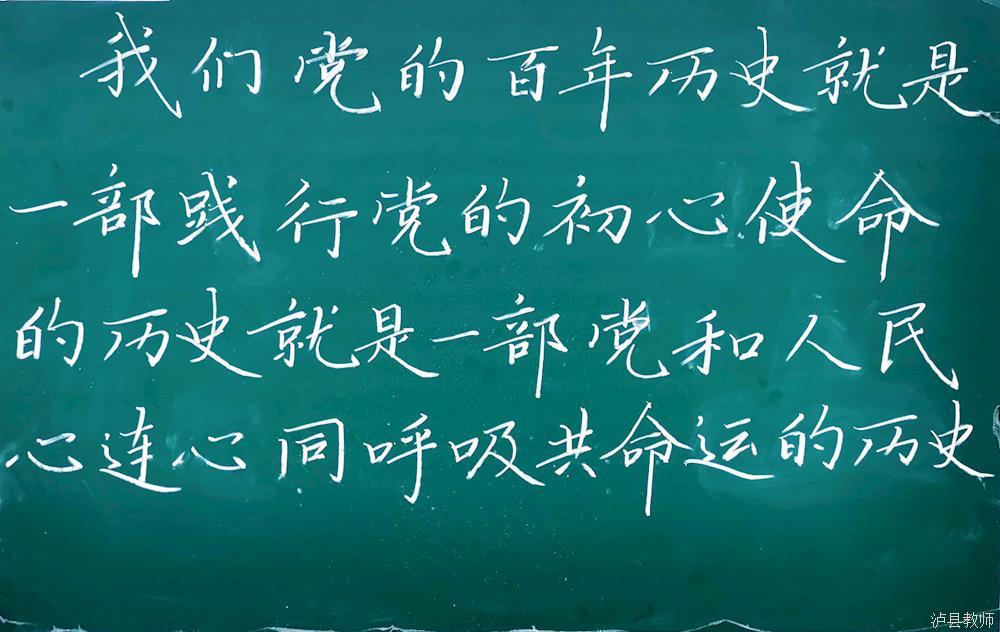 我们党的百年历史就是
一部践行党的初心使命
的历史就是一部党和人民
心连心同呼吸共命运的历史
泸县教师